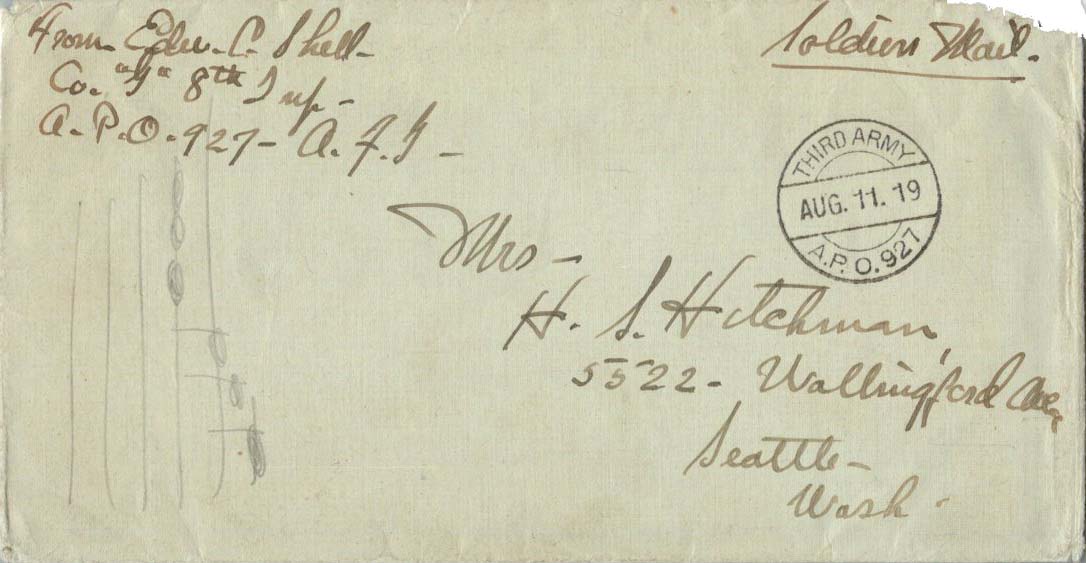 From Edw. C. Shell-
Co. "G" 8th Inf-
A.P.O. 927- A.F.G-
Soldiers Mail.
THIRD ARMY
AUG. 11. 19
A.P.O. 927
Mrs-
H. S. Hitchman,
5522- Wallingford Ave,
Seattle-
Wash.